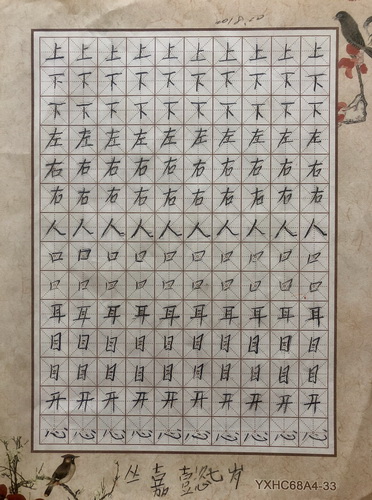 上上上上上上上上上上
下下下下下下下下下下
下下下下下下下下下下
左左左左左左左左左左
右右右右右右右右右右
右右右右右右右右右右
人人人人人人人人人人
口口口口口口口口口口
口口口口口口口口口口
耳耳耳耳耳耳耳耳耳耳
目目目目目目目目目目
目目目目目目目目目目
开开开开开开开开开开
嘉 岁
YXHC68A4-33